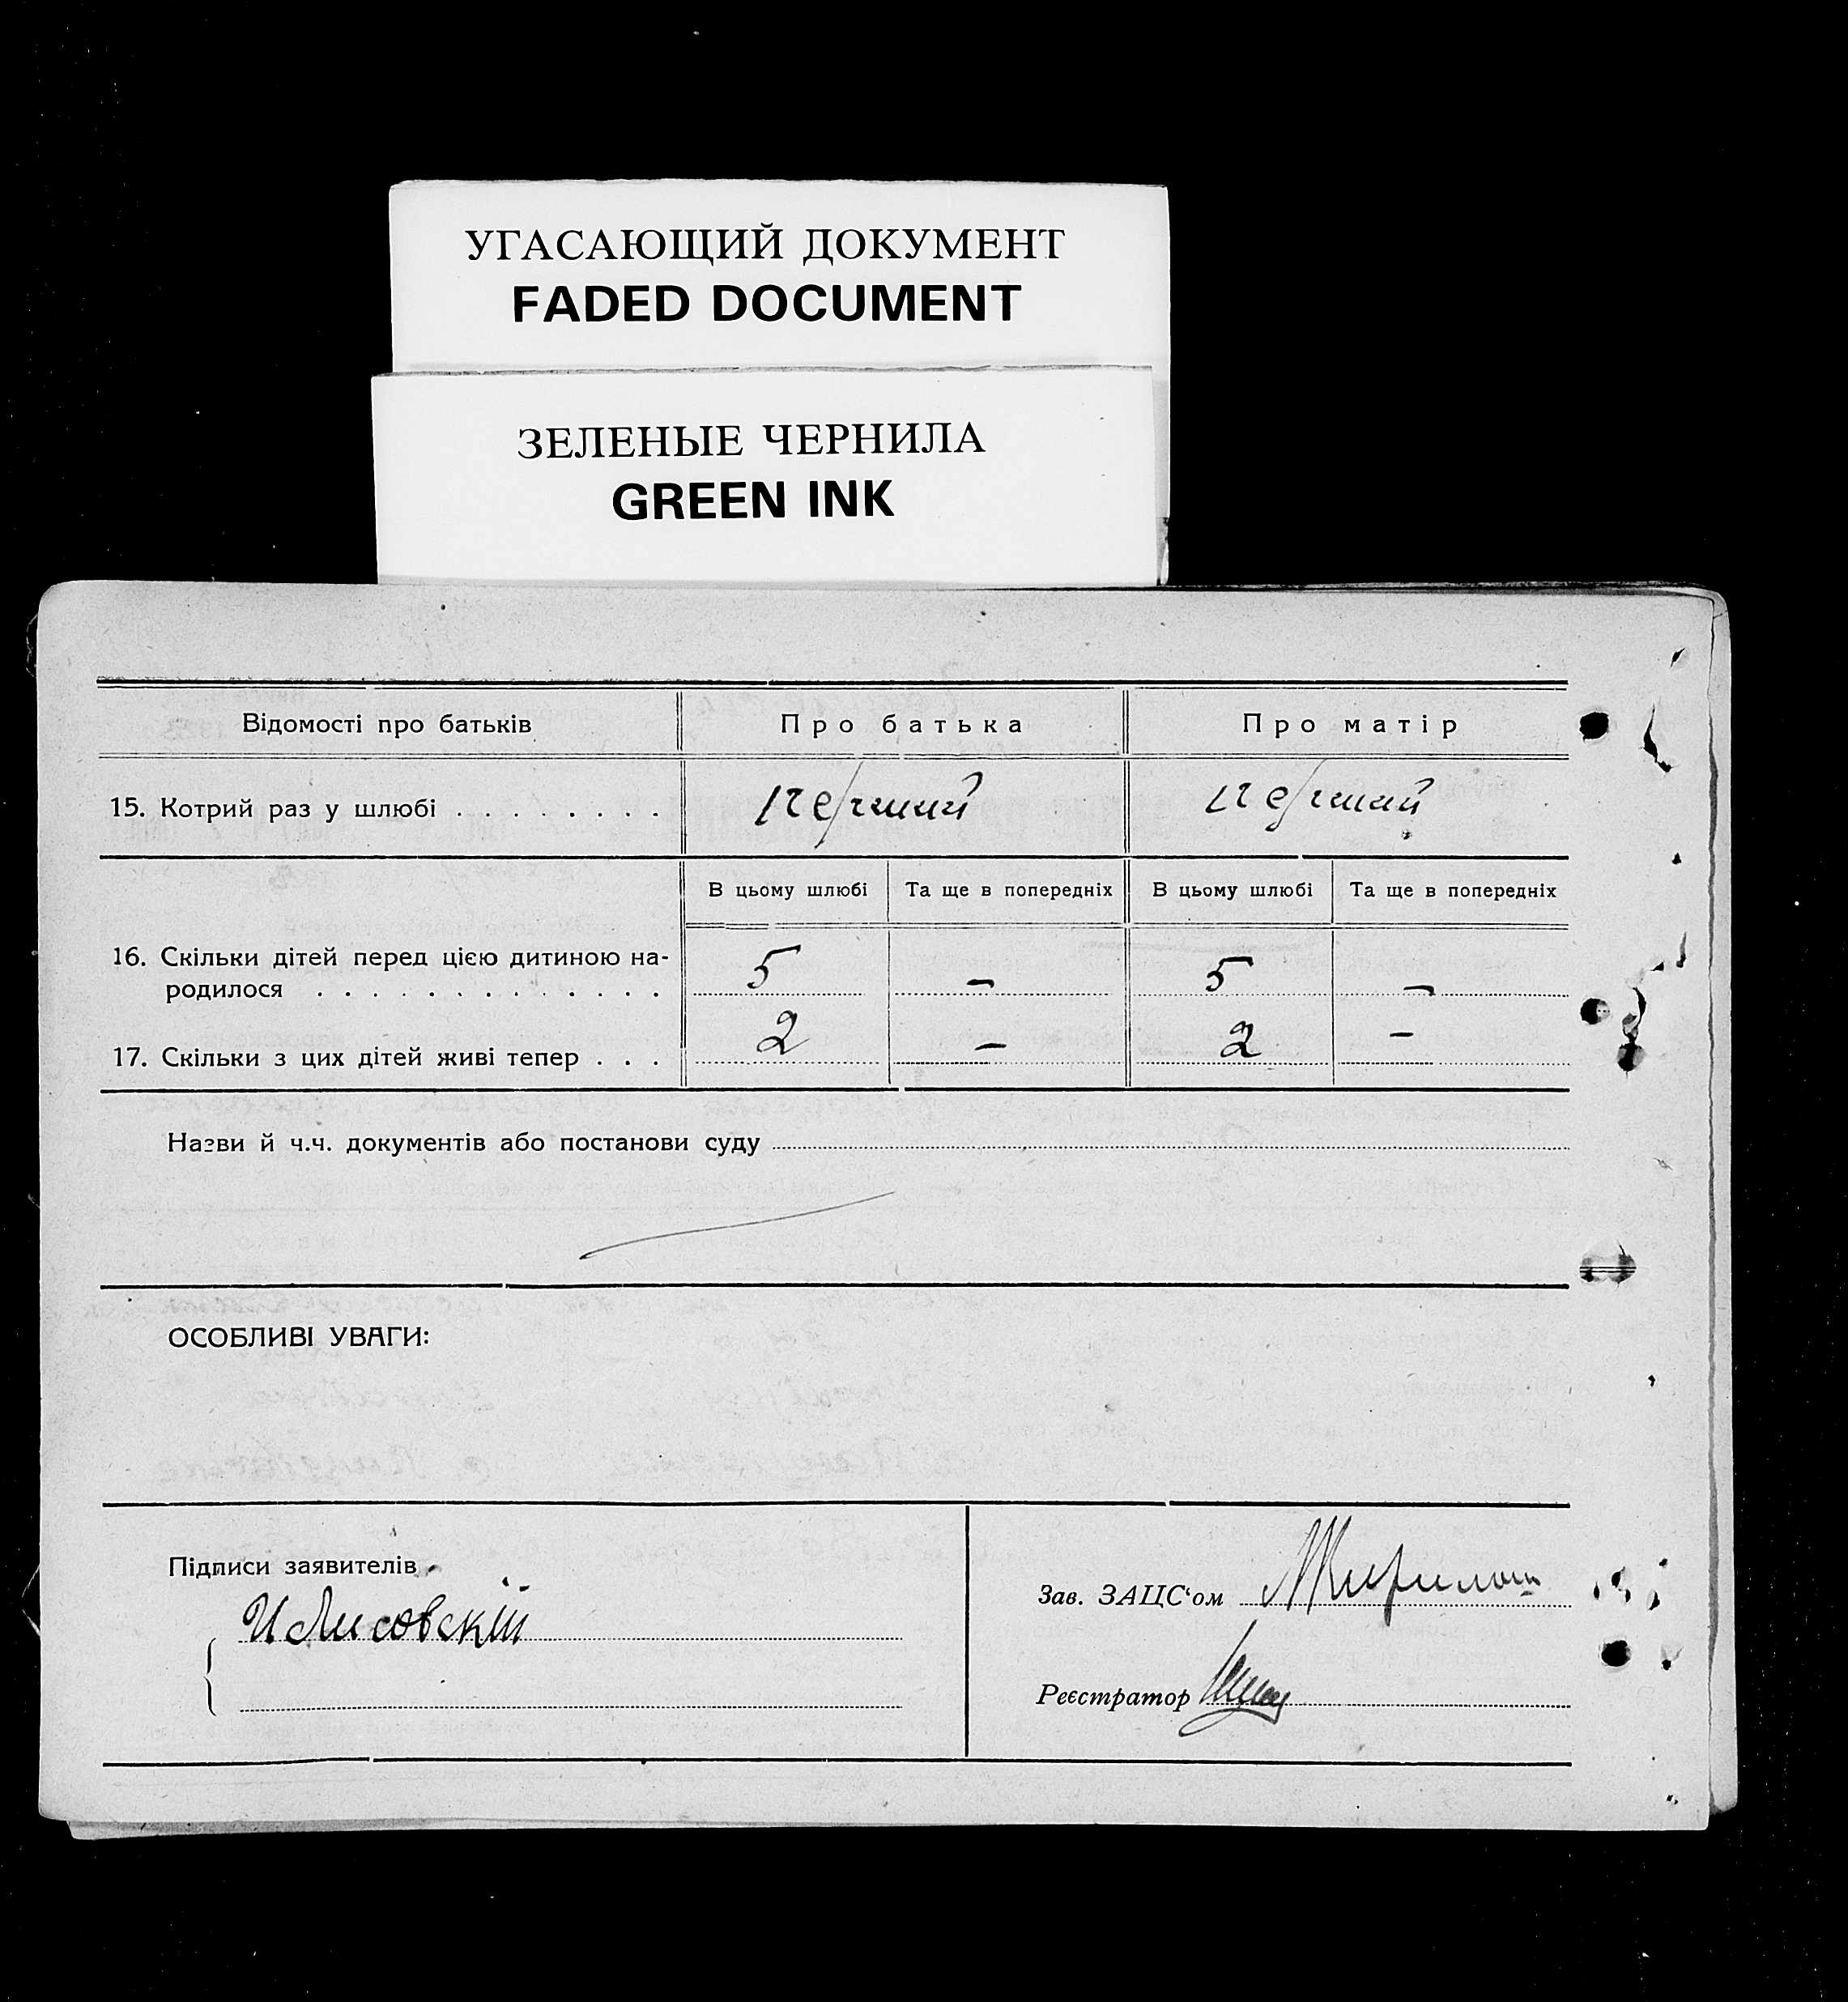 УГАСАЮЩИЙ ДОКУМЕНТ
FADED DOCUMENT
ЗЕЛЕНЫЕ ЧЕРНИЛА
GREEN INK
Відомості про батьків Про батька Про матір
15. Котрий раз у шлюбі . . . . . . . . перший перший
В цьому шлюбі Та ще в попередніх В цьому шлюбі Та ще в попередніх
16. Скільки дітей перед цією дитиною на-
родилося . . . . . . . . . . . . . 5 – 5 –
17. Скільки з цих дітей живі тепер . . . 2 – 2 –
Назви й ч.ч. документів або постанови суду
ОСОБЛИВІ УВАГИ:
Підписи заявителів
И Лисовскій
Зав. ЗАЦС‘ом
Реєстратор